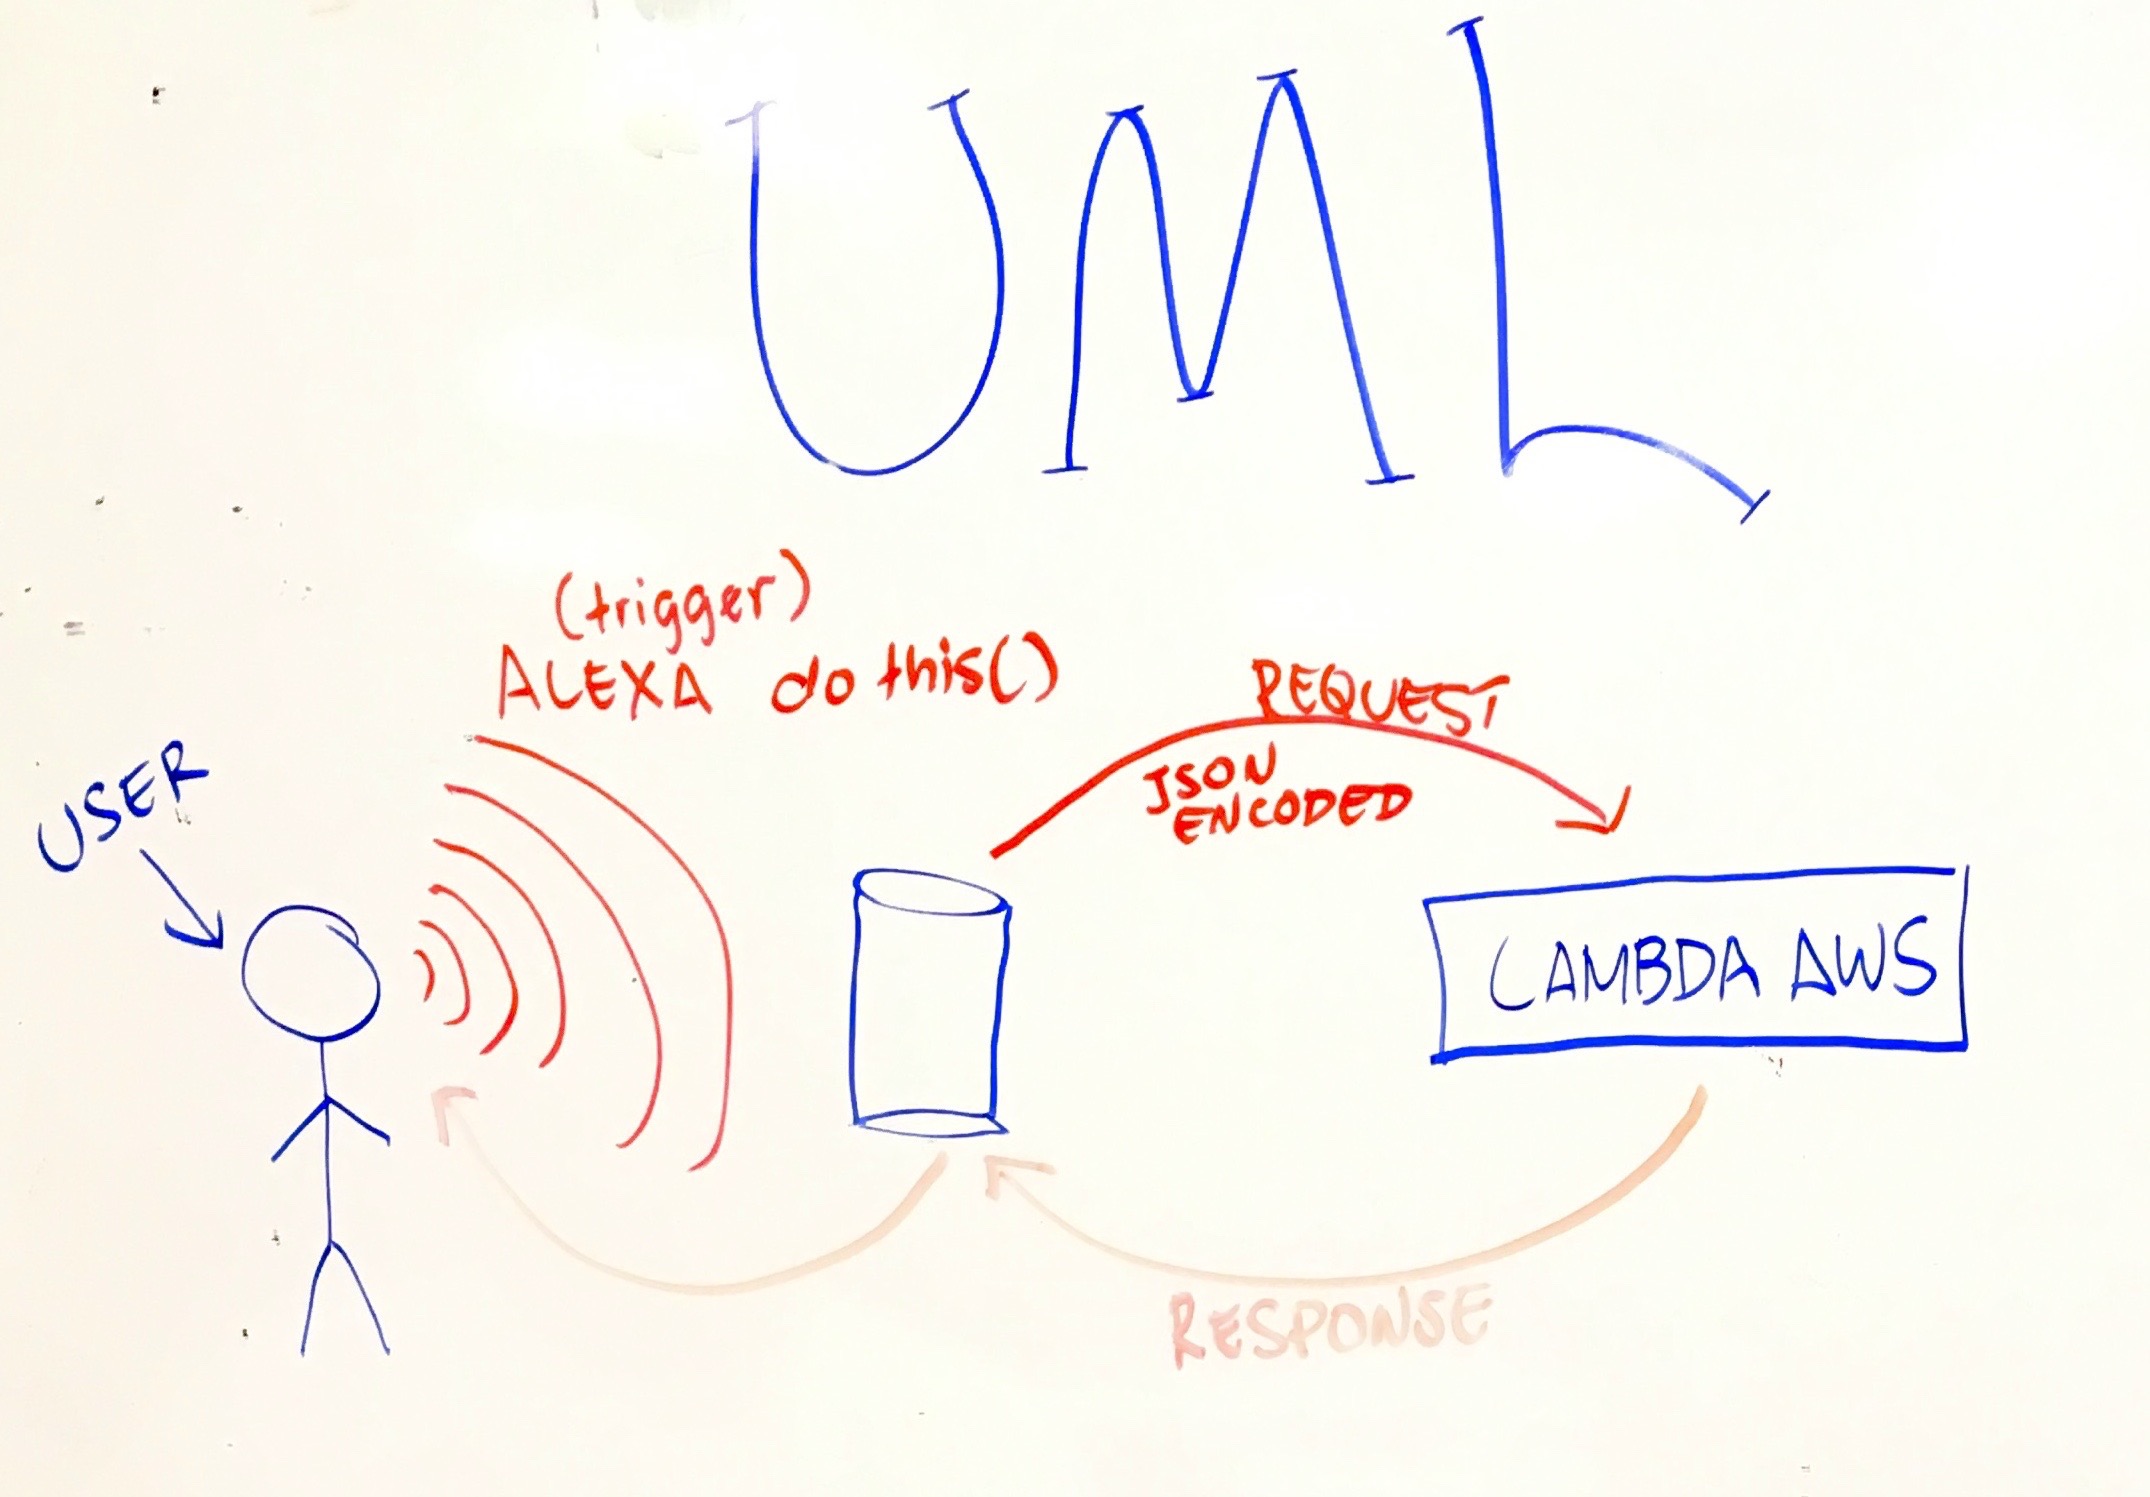 UML
(trigger)
ALEXA do this()
REQUEST
JSON
ENCODED
USER
LAMBDA AWS
RESPONSE